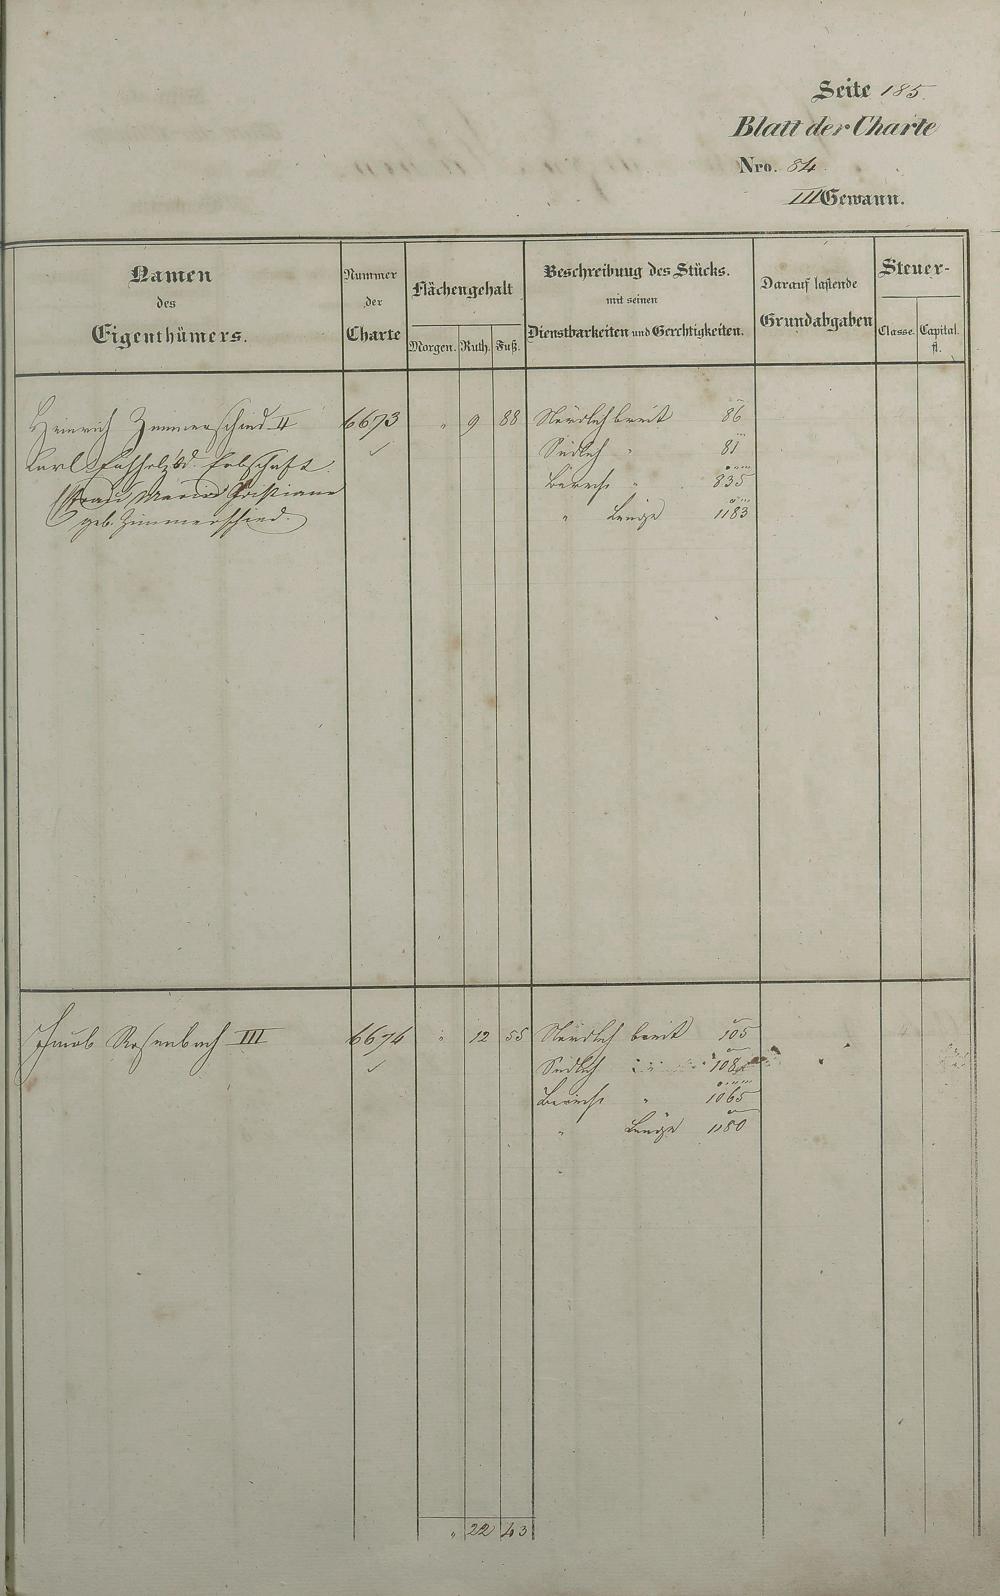 Seite 185.
Blatt der Charte
Nro. 84.
III Gewann.
Namen des Eigenthümers.
Nummer der Charte
Flächengehalt
Morgen. Ruth. Fuß.
Beschreibung des Stücks. mit seinen Dienstbarkeiten und Gerechtigkeiten.
Darauf lastende Grundabgaben
Steuer-
Classe. Capital. fl.
Heinrich Zimmerschied II 6673 " 9 88 Nördlich breit 86
Karl Erbschaft Südlich " 81
Frau Maria " 835
geb. Zimmerschied. " Länge 1183
Jacob Rosenbach III 6674 " 12 55 Nördlich breit 105
Südlich 108
" 1065
" Länge 1180
" 22 43